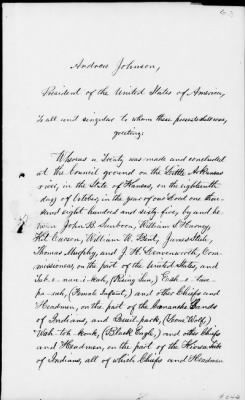 Andrew Johnson,
President of the United States of America,
To all and singular to whom these presents shall come,
greeting:
Whereas a Treaty was made and concluded
at the Council ground on the Little Arkansas
river, in the State of Kansas, on the eighteenth
day of October, in the year of our Lord one thou-
sand eight hundred and sixty-five, by and be-
tween John B. Sanborn, William S. Harney,
Kit Carson, William W. Bent, James Steele,
Thomas Murphy, and J. H. Leavenworth, Com-
missioners, on the part of the United States, and
(Rising Sun,)
(Female Infant,) and other Chiefs and
Headmen, on the part of the Camanche Bands
of Indians, and (Lone Wolf,)
(Black Eagle,) and other Chiefs
and Headmen, on the part of the Kiowa Tribe
of Indians, all of which Chiefs and Headmen